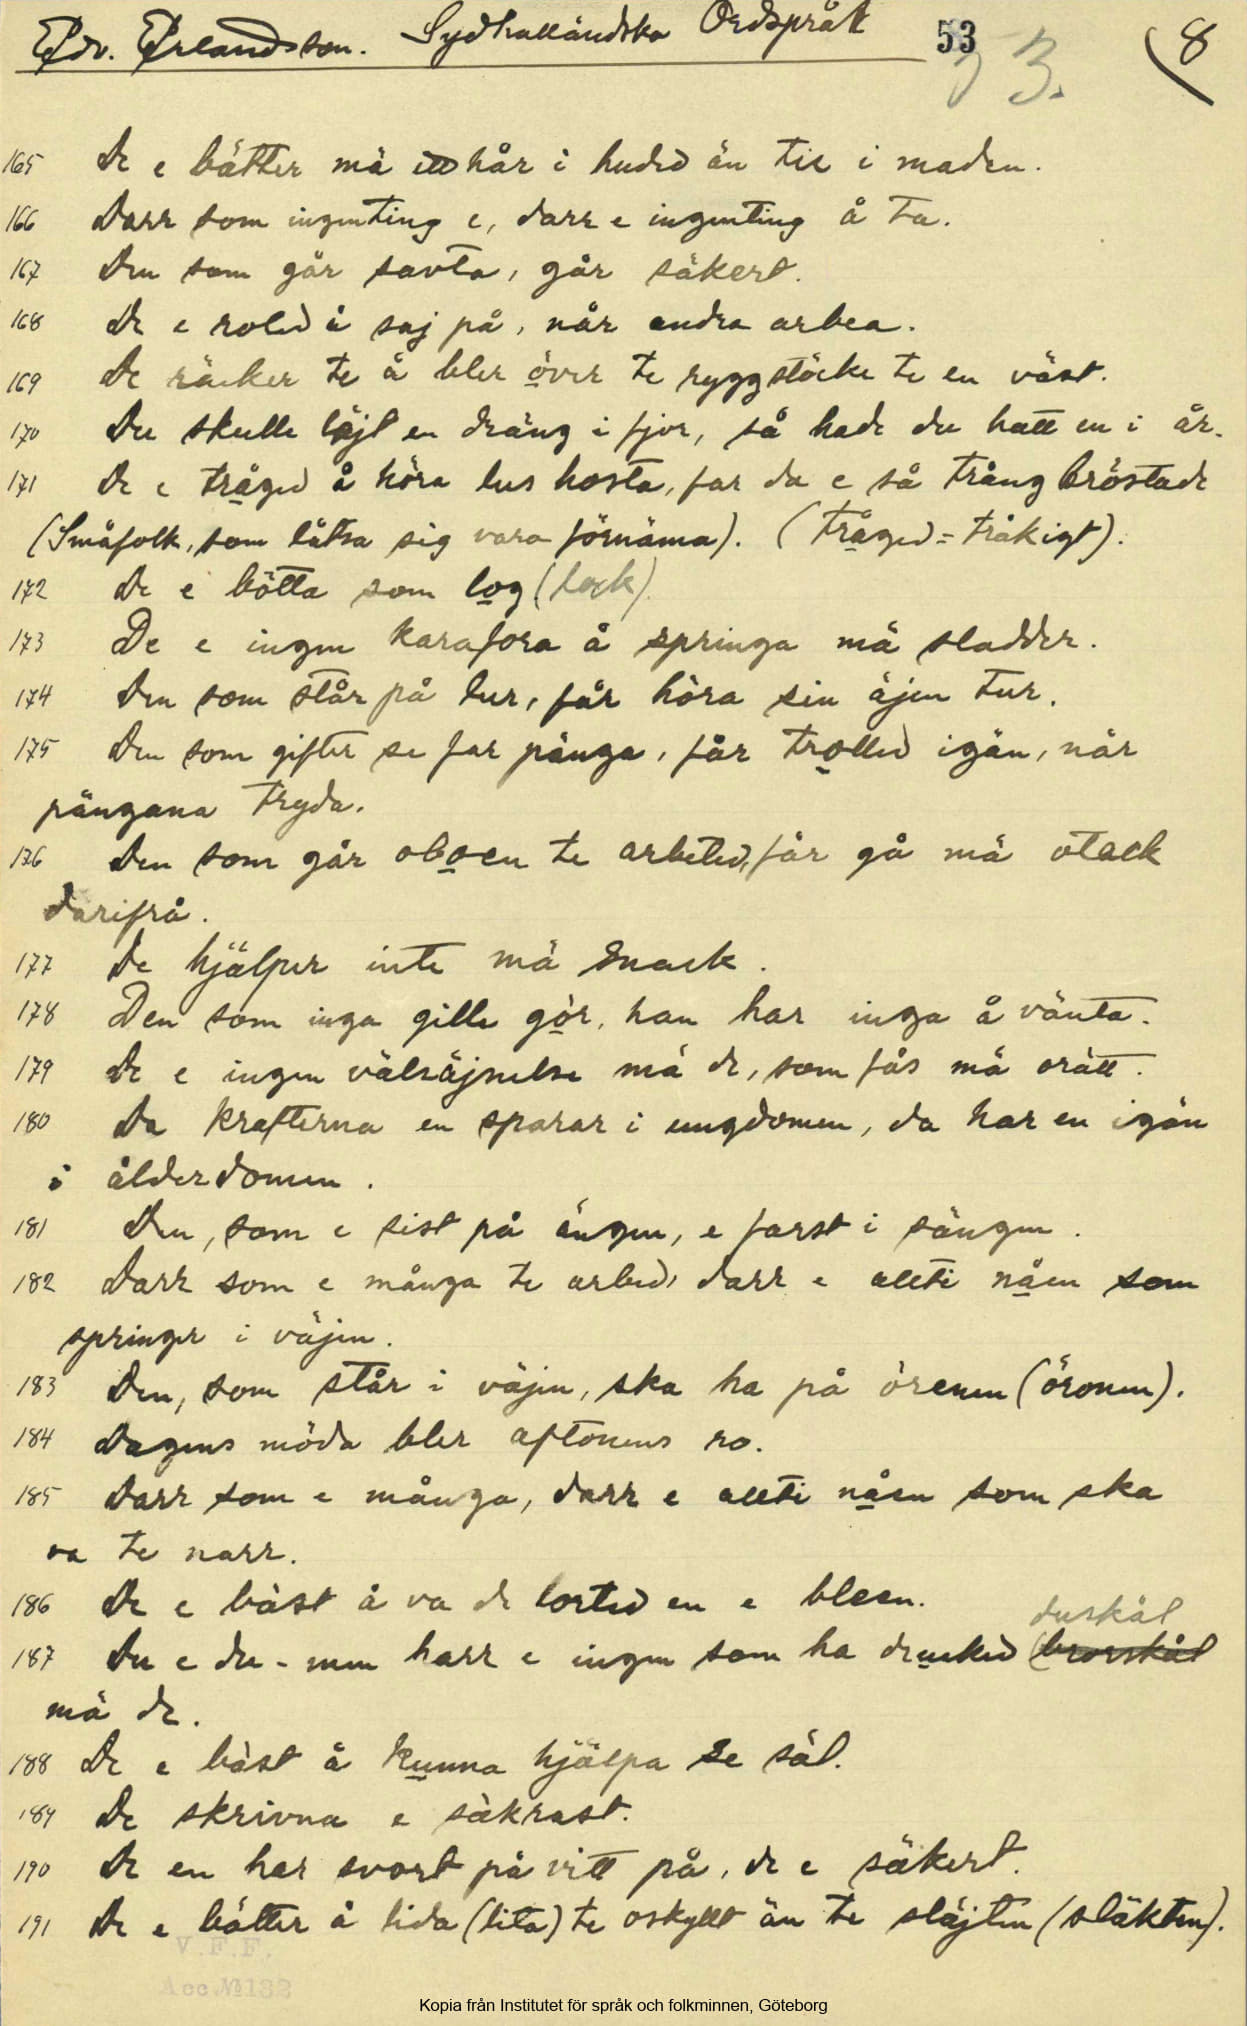 Edv. Erlandsson. Sydhalländska Ordspråk 53 8
33.
165 De e bätter mä ett hår i huded än tie i maden.
166 Darr som ingenting e, darr e ingenting å ta.
167 Den som går savta, går säkert.
168 De e rolied å saj på, når andra arbea.
169 De räcker te å bler över te ryggstöcke te en väst.
170 Du skulle läjt en dräng i fjor, så hade du hatt en i år.
171 De e tråged å höra lus hosta, far da e så trång bröstade
(Småfolk, som låtsa sig vara förnäma). (tråged = tråkigt).
172 De e bötta som log (lock)
173 De e ingen karafora å springa mä sladder.
174 Den som står på lur, får höra sin äjen tur.
175 Den som gifter se far pänga, får trolled igän, når
pängana tryda.
176 Den som går oboen te arbeted, får gå mä otack
darifrå.
177 De hjälper inte mä snack.
178 Den som inga gille gör, han har inga å vänta.
179 De e ingen välsäjnelse mä de, som fås mä orätt.
180 Da krafterna en sparar i ungdomen, da har en igän
i ålderdomen.
181 Den, som e sist på ängen, e farst i sängen.
182 Darr som e många te arbed, darr e allti nåen som
springer i väjen.
183 Den, som står i väjen, ska ha på örenen (öronen).
184 Dagens möda bler aftonens ro.
185 Darr som e många, darr e allti nåen som ska
va te narr.
186 De e bäst å va de lorted en e bleen.
duskål
187 Du e du - men harr e ingen som ha druked (brorskål
mä de.
188 De e bäst å kunna hjälpa se säl.
189 De skrivna e säkrast.
190 De en har svort på vitt på, de e säkert.
191 De e bätter å lida (lita) te oskyllt än te släjten (släkten).
V.F.F.
Acc. № 132
Kopia från Institutet för språk och folkminnen, Göteborg